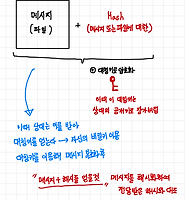 메시지
(파일)
+
Hash
(메시지 또는 파일에 대한)
① 대칭키로 암호화
이때 이 대칭키는
상대의 공개키로 암호화됨
이때 상대는 이를 받아
대칭키를 얻는다 → 자신의 비밀키 이용
대칭키를 이용하여 메시지 복호화
"메시지 + 해시를 얻을것"
메시지를 해시화하여
전달받은 해시와 대조